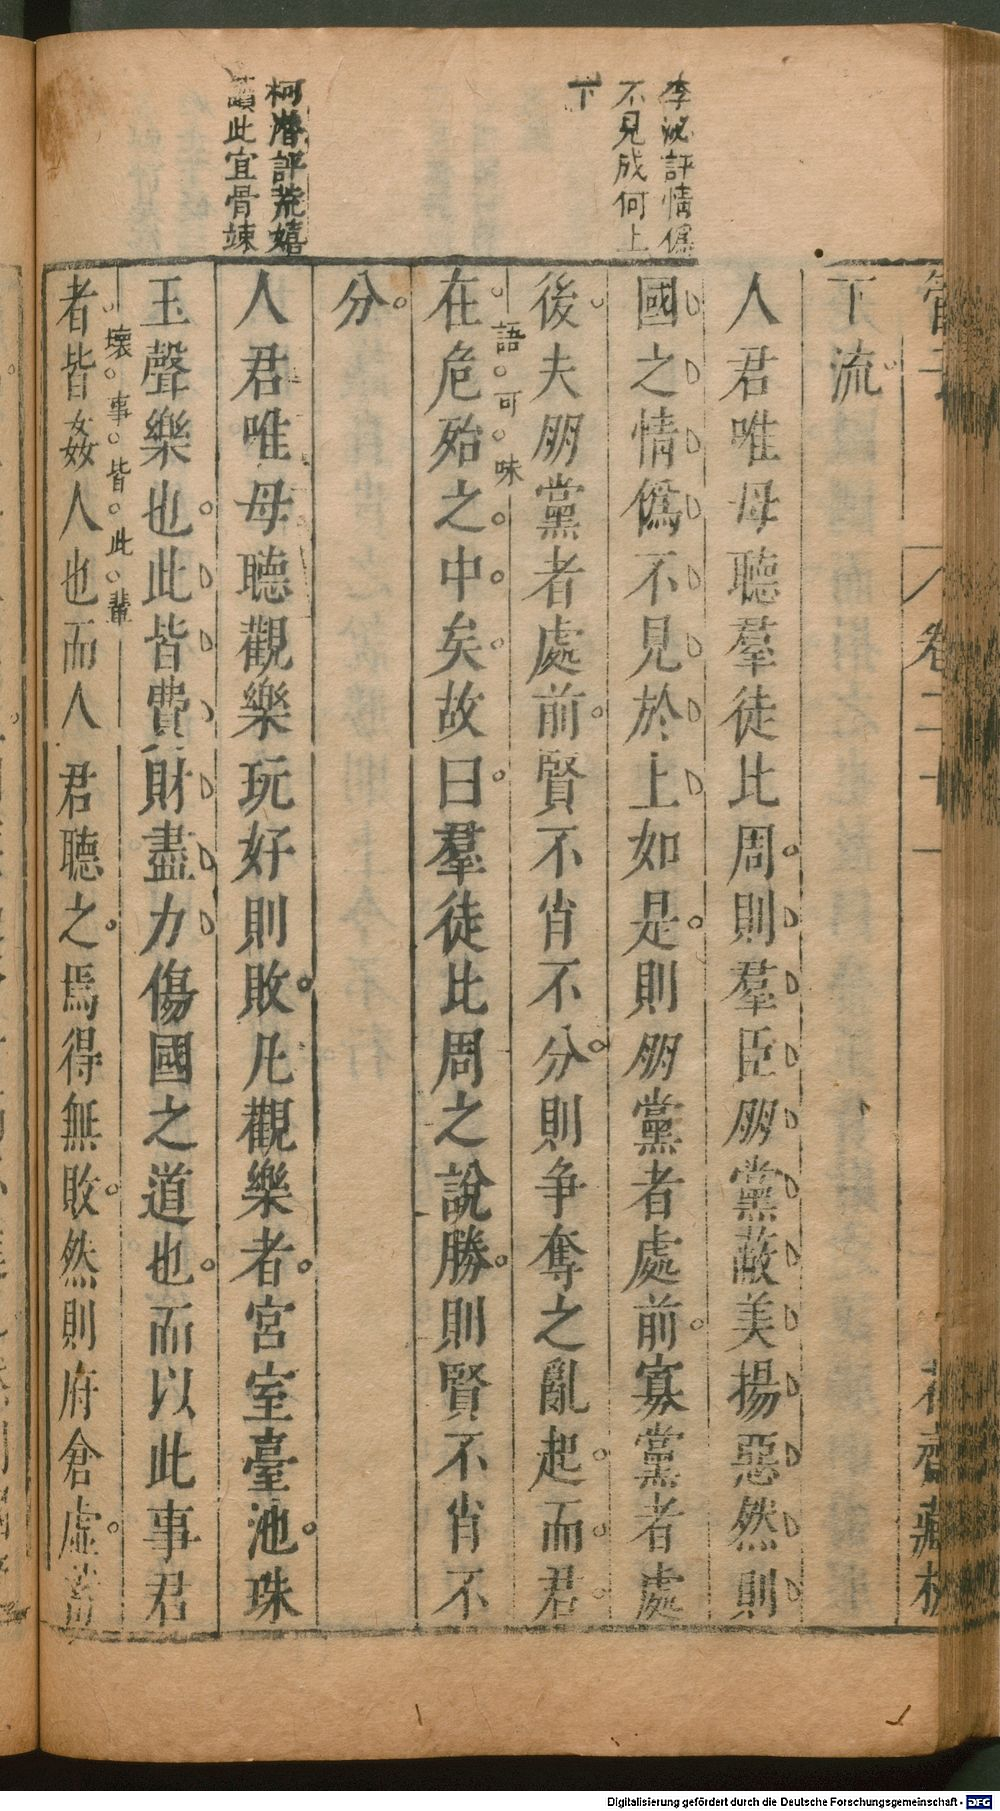 李泌評情僞
不見成何上
下
柯潛評荒嬉
讀此宜骨竦
管子 卷二十一 花齋藏板
下流。
人君唯毋聽羣徒比周。則羣臣朋黨蔽美揚惡然則
國之情僞不見於上如是。則朋黨者處前。寡黨者處
後。夫朋黨者處前。賢不肖不分。則争奪之亂起。而君。
語可味
在危殆之中矣。故曰。羣徒比周之說勝。則賢不肖不
分。
人君唯毋聽觀樂玩好則敗。凡觀樂者。宮室臺池。珠
玉聲樂也。此皆費財盡力傷國之道也。而以此事君
壞事皆此輩
者皆姦人也而人君聽之。焉得無敗。然則府倉虛。蓄
Digitalisierung gefördert durch die Deutsche Forschungsgemeinschaft - DFG